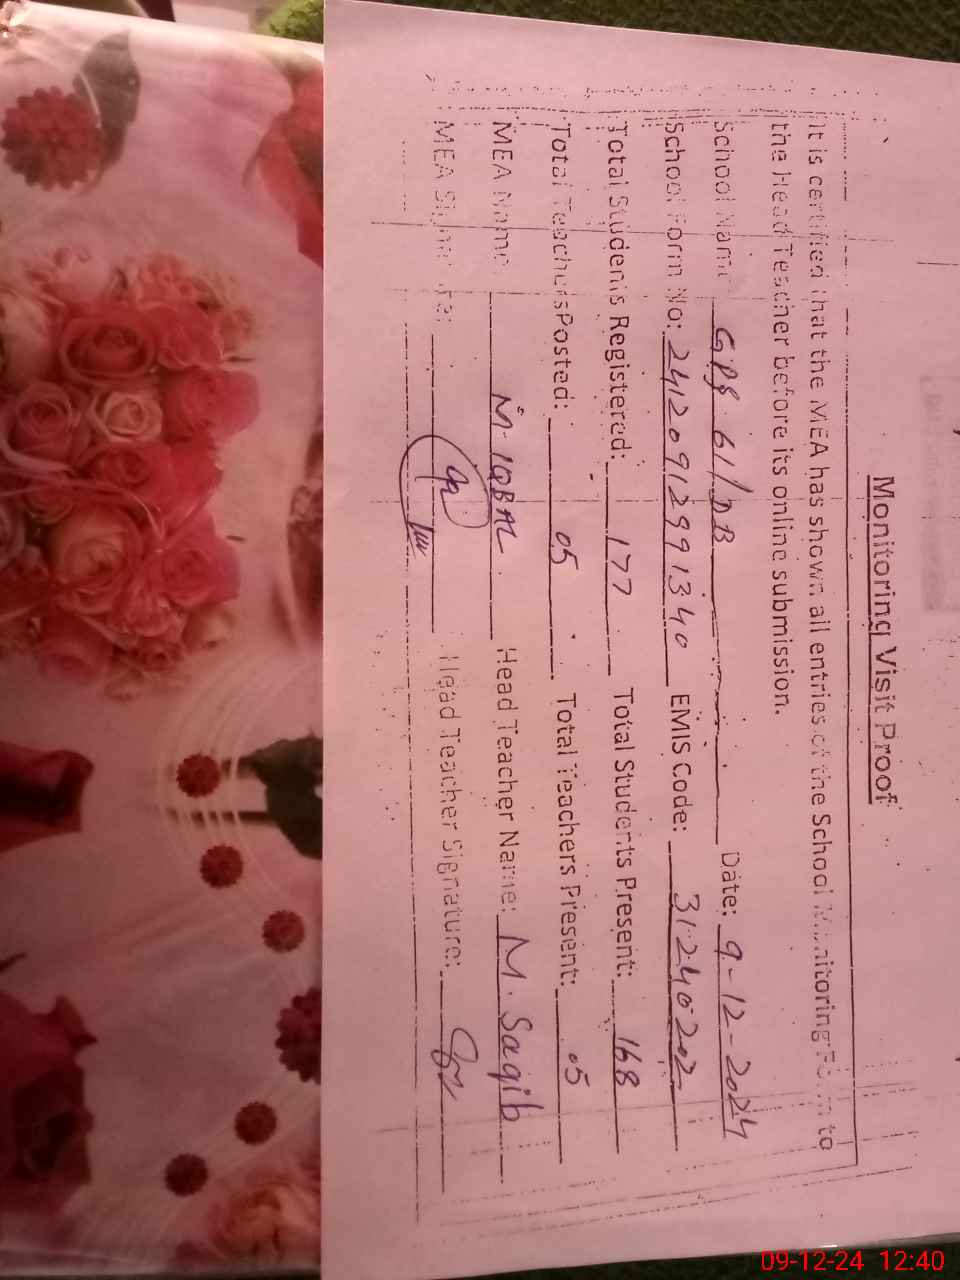 Monitoring Visit Proof
It is certified that the MEA has shown all entries of the School Monitoring Form to
the Head Teacher before its online submission.
School Name GPS 61/DB Date: 9-12-2024
School Form No: 24120912991340 EMIS Code: 31240202
Total Students Registered: 177 Total Students Present: 168
Total Teachers Posted: 05 Total Teachers Present: 05
MEA Name: M. IQBAL Head Teacher Name: M. Saqib
MEA Signature: Head Teacher Signature:
09-12-24 12:40